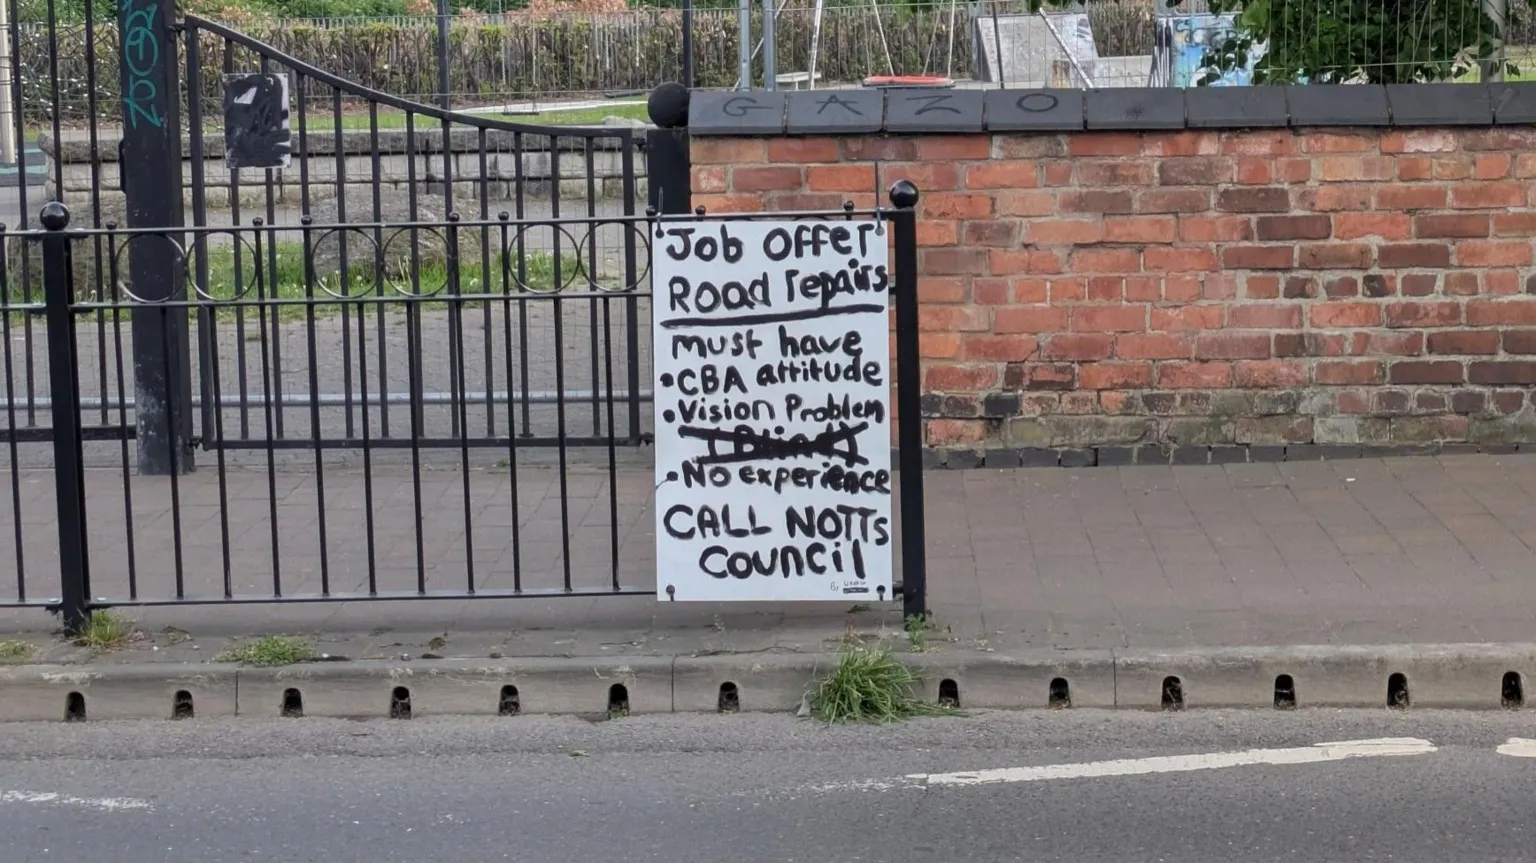 GAZO
Job Offer
Road repairs
must have
•CBA attitude
•Vision Problem
•No experience
CALL NOTTs
Council
By